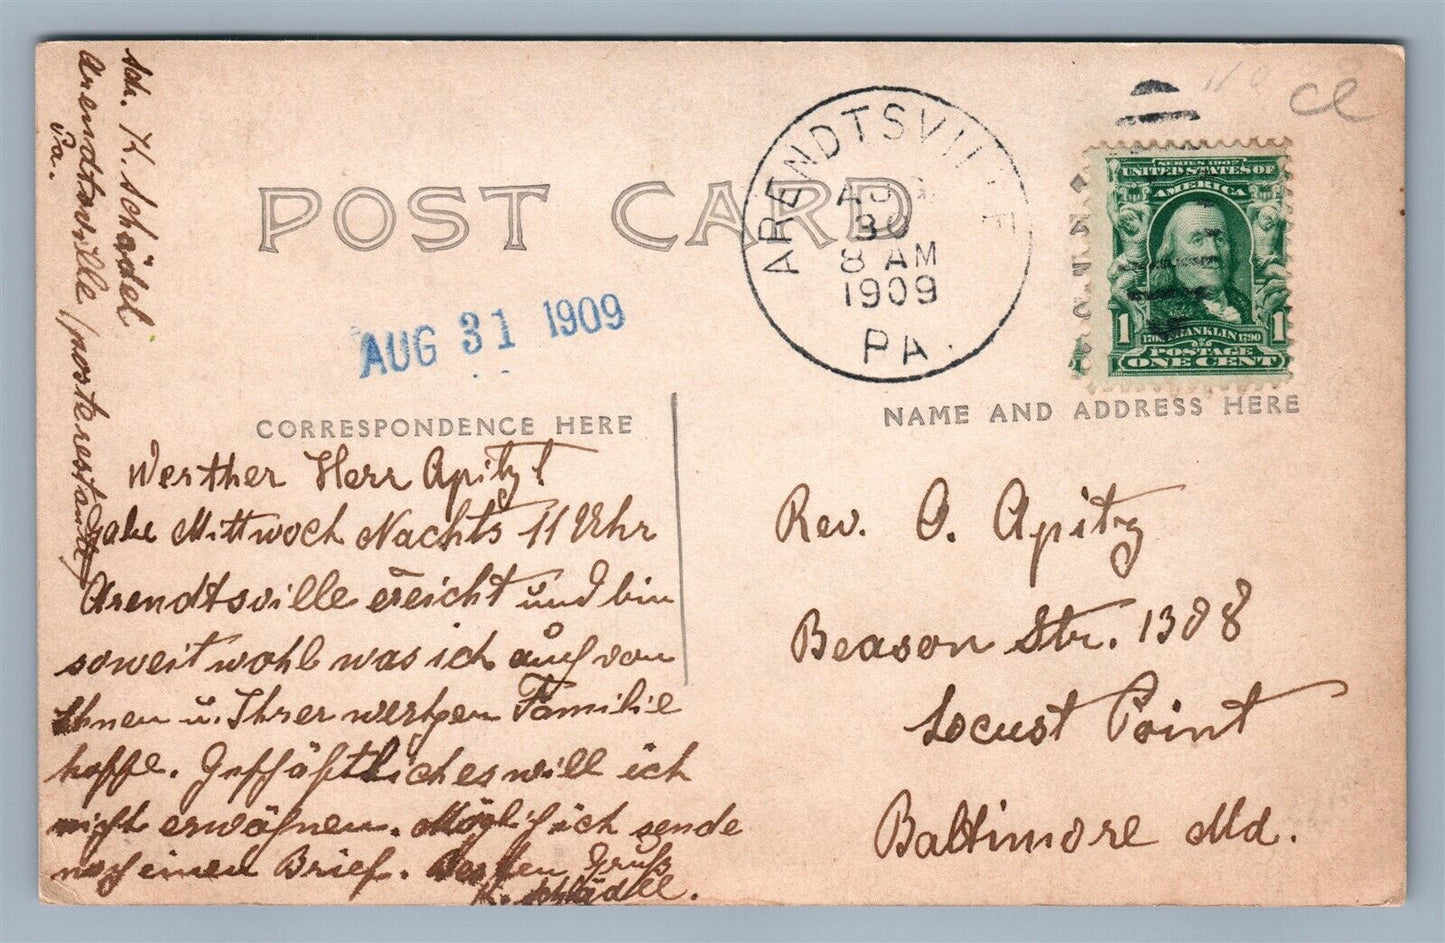 Sch. K. Schädel
Arendtsville / posterestante
Pa.
Ce
POST CARD
ARENDTSVILLE
AUG
30
8 AM
1909
PA.
SERIES 1902
UNITED STATES OF
AMERICA
1 1706 FRANKLIN 1790 1
POSTAGE
ONE CENT
AUG 31 1909
CORRESPONDENCE HERE
NAME AND ADDRESS HERE
Werther Herr Apitz!
habe Mittwoch Nachts 11 Uhr
Arendtsville ereicht und bin
soweit wohl was ich auch von
Ihnen u. Ihrer werthen Familie
hoffe. Geschäftliches will ich
nicht erwähnen. Möglich ich sende
noch einen Brief. Besten Gruß
K. Schädel.
Rev. O. Apitz
Beason Str. 1308
Locust Point
Baltimore Md.